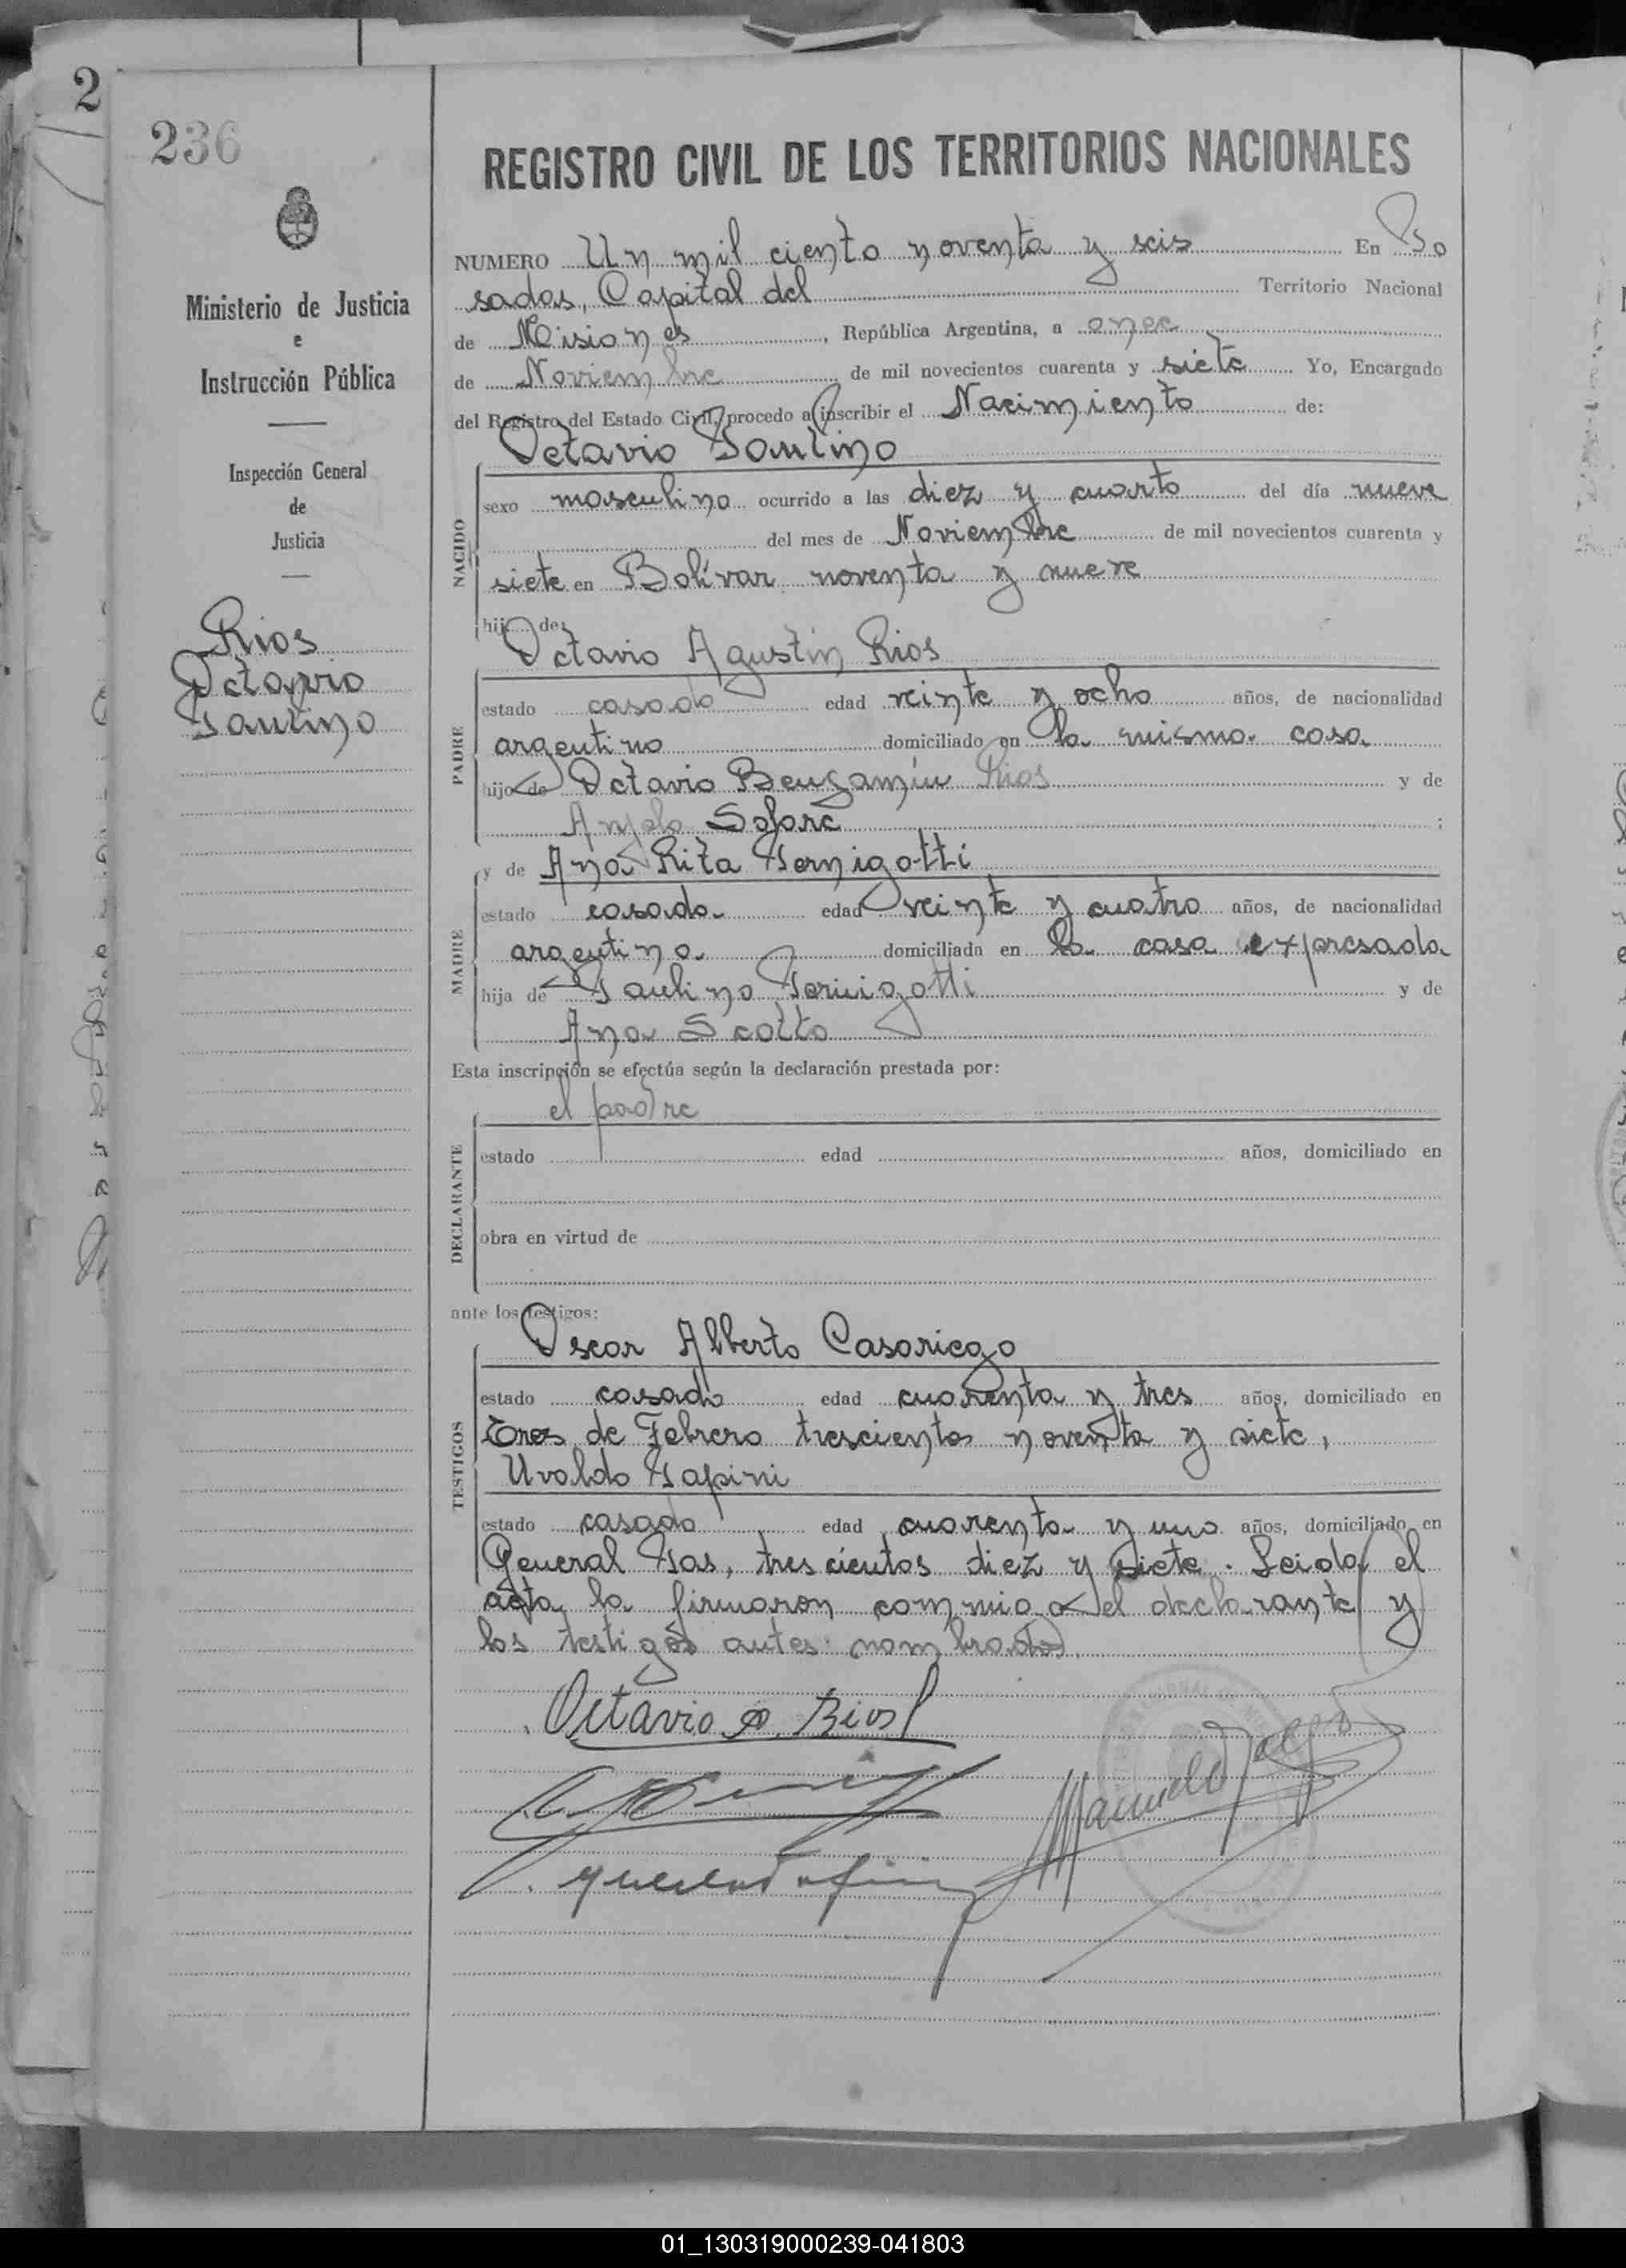 2
236
REGISTRO CIVIL DE LOS TERRITORIOS NACIONALES
Ministerio de Justicia
e
Instrucción Pública
Inspección General
de
Justicia
Rios
Octavio
Paulino
NUMERO Un mil ciento noventa y seis En Po
sadas, Capital del Territorio Nacional
de Misiones, República Argentina, a once
de Noviembre de mil novecientos cuarenta y siete Yo, Encargado
del Registro del Estado Civil, procedo a inscribir el Nacimiento de:
Octavio Paulino
NACIDO
sexo masculino ocurrido a las diez y cuarto del día nueve
del mes de Noviembre de mil novecientos cuarenta y
siete en Bolívar noventa y nueve
hijo de:
Octavio Agustín Rios
PADRE
estado casado edad veinte y ocho años, de nacionalidad
argentino domiciliado en la misma casa
hijo de Octavio Benjamín Rios y de
;
y de Ana Rita Pernigotti
MADRE
estado casada edad veinte y cuatro años, de nacionalidad
argentina domiciliada en la casa expresada
hija de Paulino Pernigotti y de
Ana Scotto
Esta inscripción se efectúa según la declaración prestada por:
el padre
DECLARANTE
estado edad años, domiciliado en
obra en virtud de
ante los testigos:
Oscar Alberto Casariego
TESTIGOS
estado casado edad cuarenta y tres años, domiciliado en
Tres de Febrero trescientos noventa y siete,
Uvaldo Papini
estado casado edad cuarenta y uno años, domiciliado en
General Pas, trescientos diez y siete. Leida el
acta la firmaron conmigo el declarante y
los testigos antes nombrados.
Octavio A. Rios
01_130319000239-041803